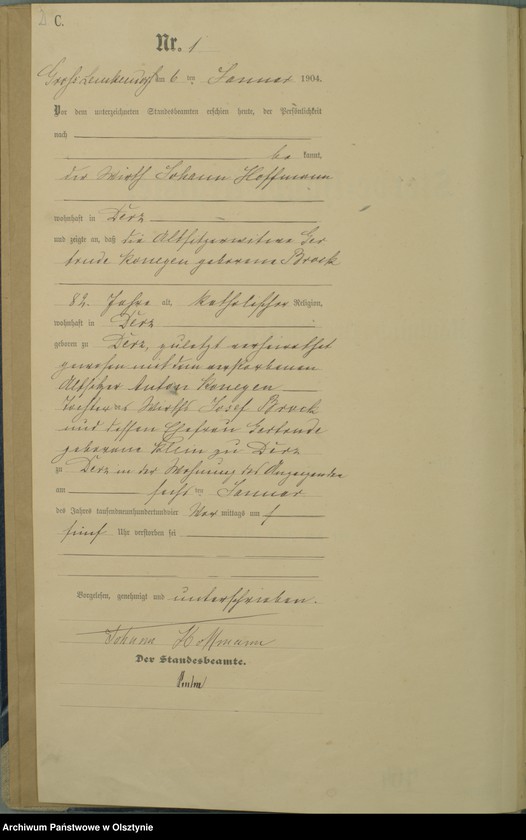 C.
Nr. 1
Groß Lemkendorf am 6 ten Januar 1904.
Vor dem unterzeichneten Standesbeamten erschien heute, der Persönlichkeit
nach
be kannt,
der Wirth Johann Hoffmann
wohnhaft in Derz
und zeigte an, daß die Altsitzerwitwe Ger
trude Konegen geborene Brock
82 Jahre alt, katholischer Religion,
wohnhaft in Derz
geboren zu Derz, zuletzt verheirathet
gewesen mit dem verstorbenen
Altsitzer Anton Konegen
Tochter des Wirths Josef Brock
und dessen Ehefrau Gertrude
geborene Klein zu Derz
zu Derz in der Wohnung des Anzeigenden
am sechs ten Januar
des Jahres tausendneunhundertundvier Vor mittags um
fünf Uhr verstorben sei
Vorgelesen, genehmigt und unterschrieben.
Johann Hoffmann
Der Standesbeamte.
Archiwum Państwowe w Olsztynie